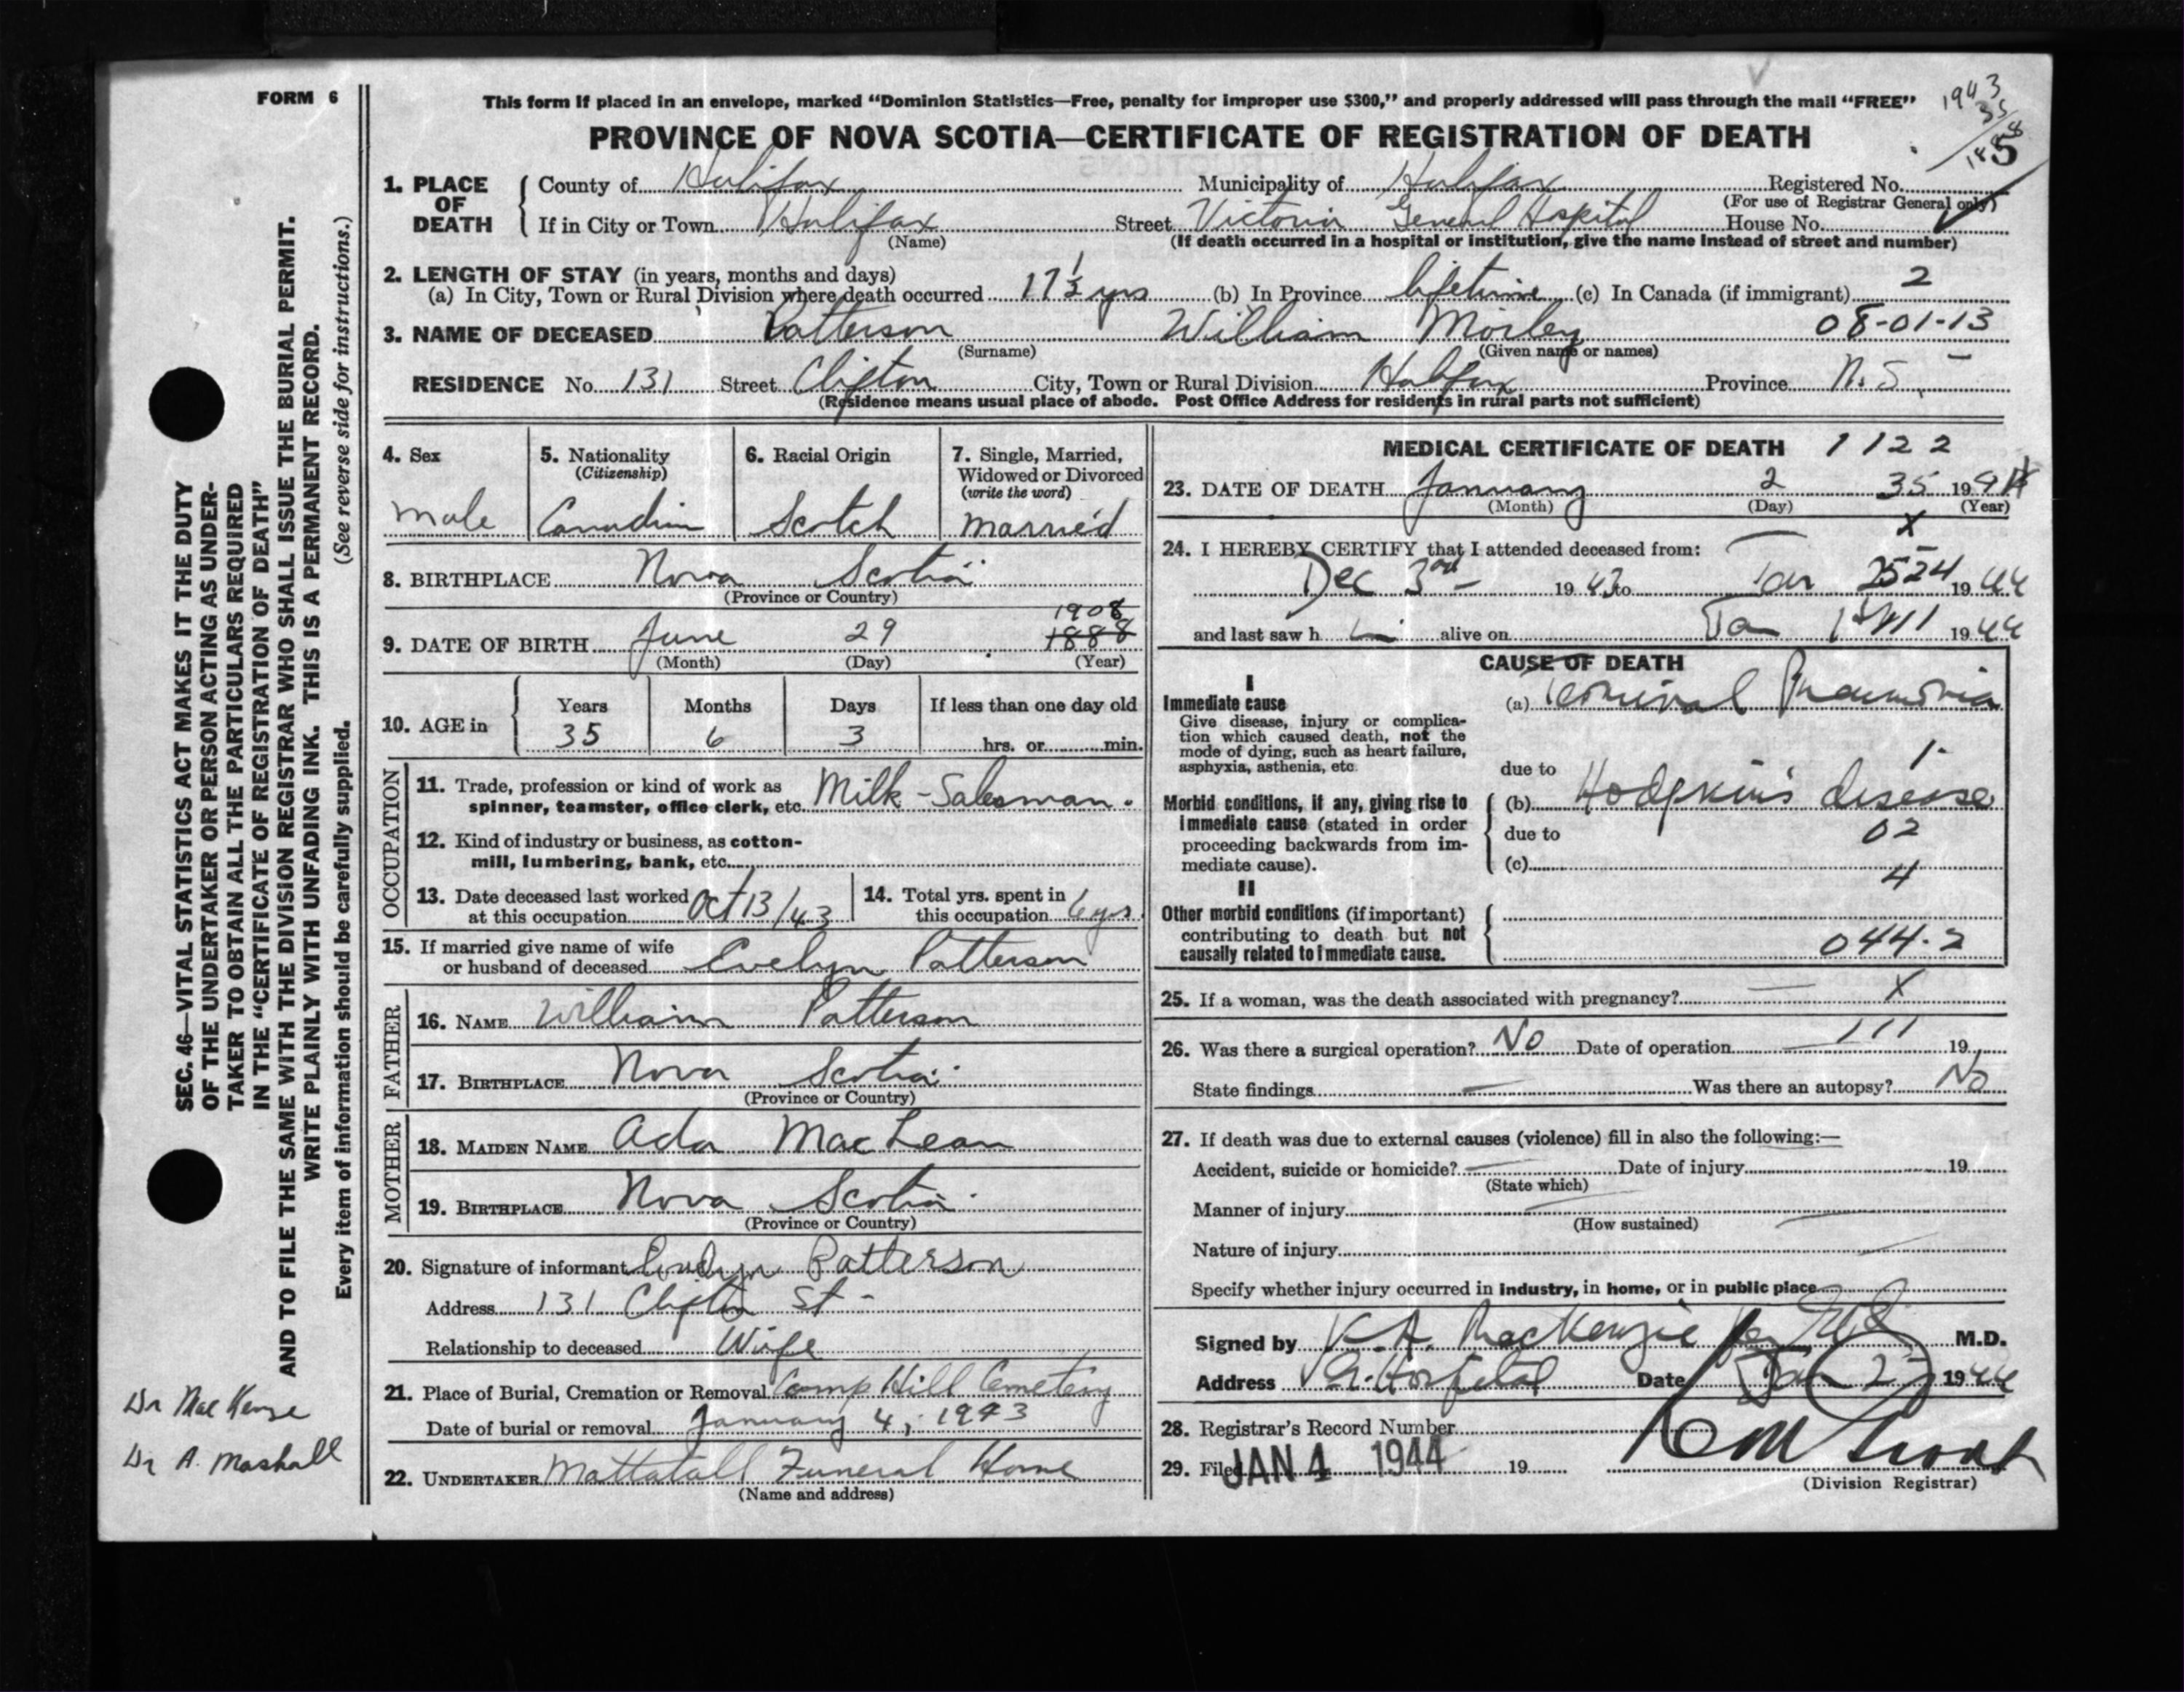 FORM 6
This form if placed in an envelope, marked "Dominion Statistics—Free, penalty for improper use $300," and properly addressed will pass through the mail "FREE"
1943
35
1888
5
PROVINCE OF NOVA SCOTIA—CERTIFICATE OF REGISTRATION OF DEATH
1. PLACE OF DEATH County of Halifax Municipality of Halifax Registered No.
(For use of Registrar General only)
If in City or Town Halifax Street Victoria General Hospital House No.
(Name) (If death occurred in a hospital or institution, give the name instead of street and number)
2. LENGTH OF STAY (in years, months and days)
(a) In City, Town or Rural Division where death occurred 17 1/2 yrs (b) In Province lifetime (c) In Canada (if immigrant) 2
3. NAME OF DECEASED Patterson William Morley 08-01-13
(Surname) (Given name or names)
RESIDENCE No. 131 Street Clifton City, Town or Rural Division Halifax Province N.S.
(Residence means usual place of abode. Post Office Address for residents in rural parts not sufficient)
4. Sex
male
5. Nationality
(Citizenship)
Canadian
6. Racial Origin
Scotch
7. Single, Married,
Widowed or Divorced
(write the word)
married
8. BIRTHPLACE Nova Scotia
(Province or Country)
1908
9. DATE OF BIRTH June 29 1888
(Month) (Day) (Year)
10. AGE in
Years Months Days If less than one day old
35 6 3 hrs. or min.
OCCUPATION
11. Trade, profession or kind of work as
spinner, teamster, office clerk, etc. Milk-Salesman.
12. Kind of industry or business, as cotton-
mill, lumbering, bank, etc.
13. Date deceased last worked
at this occupation Oct 13/43
14. Total yrs. spent in
this occupation 6 yrs
15. If married give name of wife
or husband of deceased Evelyn Patterson
FATHER
16. NAME William Patterson
17. BIRTHPLACE Nova Scotia
(Province or Country)
MOTHER
18. MAIDEN NAME Ada MacLean
19. BIRTHPLACE Nova Scotia
(Province or Country)
20. Signature of informant Evelyn Patterson
Address 131 Clifton St-
Relationship to deceased Wife
21. Place of Burial, Cremation or Removal Camp Hill Cemetery
Date of burial or removal January 4, 1943
22. UNDERTAKER Mattatall Funeral Home
(Name and address)
MEDICAL CERTIFICATE OF DEATH 1122
23. DATE OF DEATH January 2 35 1944
(Month) (Day) (Year)
x
24. I HEREBY CERTIFY that I attended deceased from:
Dec 3rd 1943 to Jan 1944
and last saw h alive on Jan 1st 1944
CAUSE OF DEATH
I
Immediate cause
Give disease, injury or complica-
tion which caused death, not the
mode of dying, such as heart failure,
asphyxia, asthenia, etc.
(a) Terminal Pneumonia
1-
due to
Morbid conditions, if any, giving rise to
immediate cause (stated in order
proceeding backwards from im-
mediate cause).
(b) Hodgkin's disease
due to 02
(c)
4
II
Other morbid conditions (if important)
contributing to death but not
causally related to immediate cause.
044.2
25. If a woman, was the death associated with pregnancy? x
26. Was there a surgical operation? No Date of operation 111 19
State findings Was there an autopsy? No
27. If death was due to external causes (violence) fill in also the following:—
Accident, suicide or homicide? Date of injury 19
(State which)
Manner of injury
(How sustained)
Nature of injury
Specify whether injury occurred in industry, in home, or in public place
Signed by K.A. MacKenzie M.D.
Address V.G. Hospital Date Jan 2 1944
28. Registrar's Record Number
29. Filed JAN 4 1944 19
(Division Registrar)
SEC. 46—VITAL STATISTICS ACT MAKES IT THE DUTY
OF THE UNDERTAKER OR PERSON ACTING AS UNDER-
TAKER TO OBTAIN ALL THE PARTICULARS REQUIRED
IN THE "CERTIFICATE OF REGISTRATION OF DEATH"
AND TO FILE THE SAME WITH THE DIVISION REGISTRAR WHO SHALL ISSUE THE BURIAL PERMIT.
WRITE PLAINLY WITH UNFADING INK. THIS IS A PERMANENT RECORD.
Every item of information should be carefully supplied. (See reverse side for instructions.)
Dr MacKenzie
Dr A. Mashall